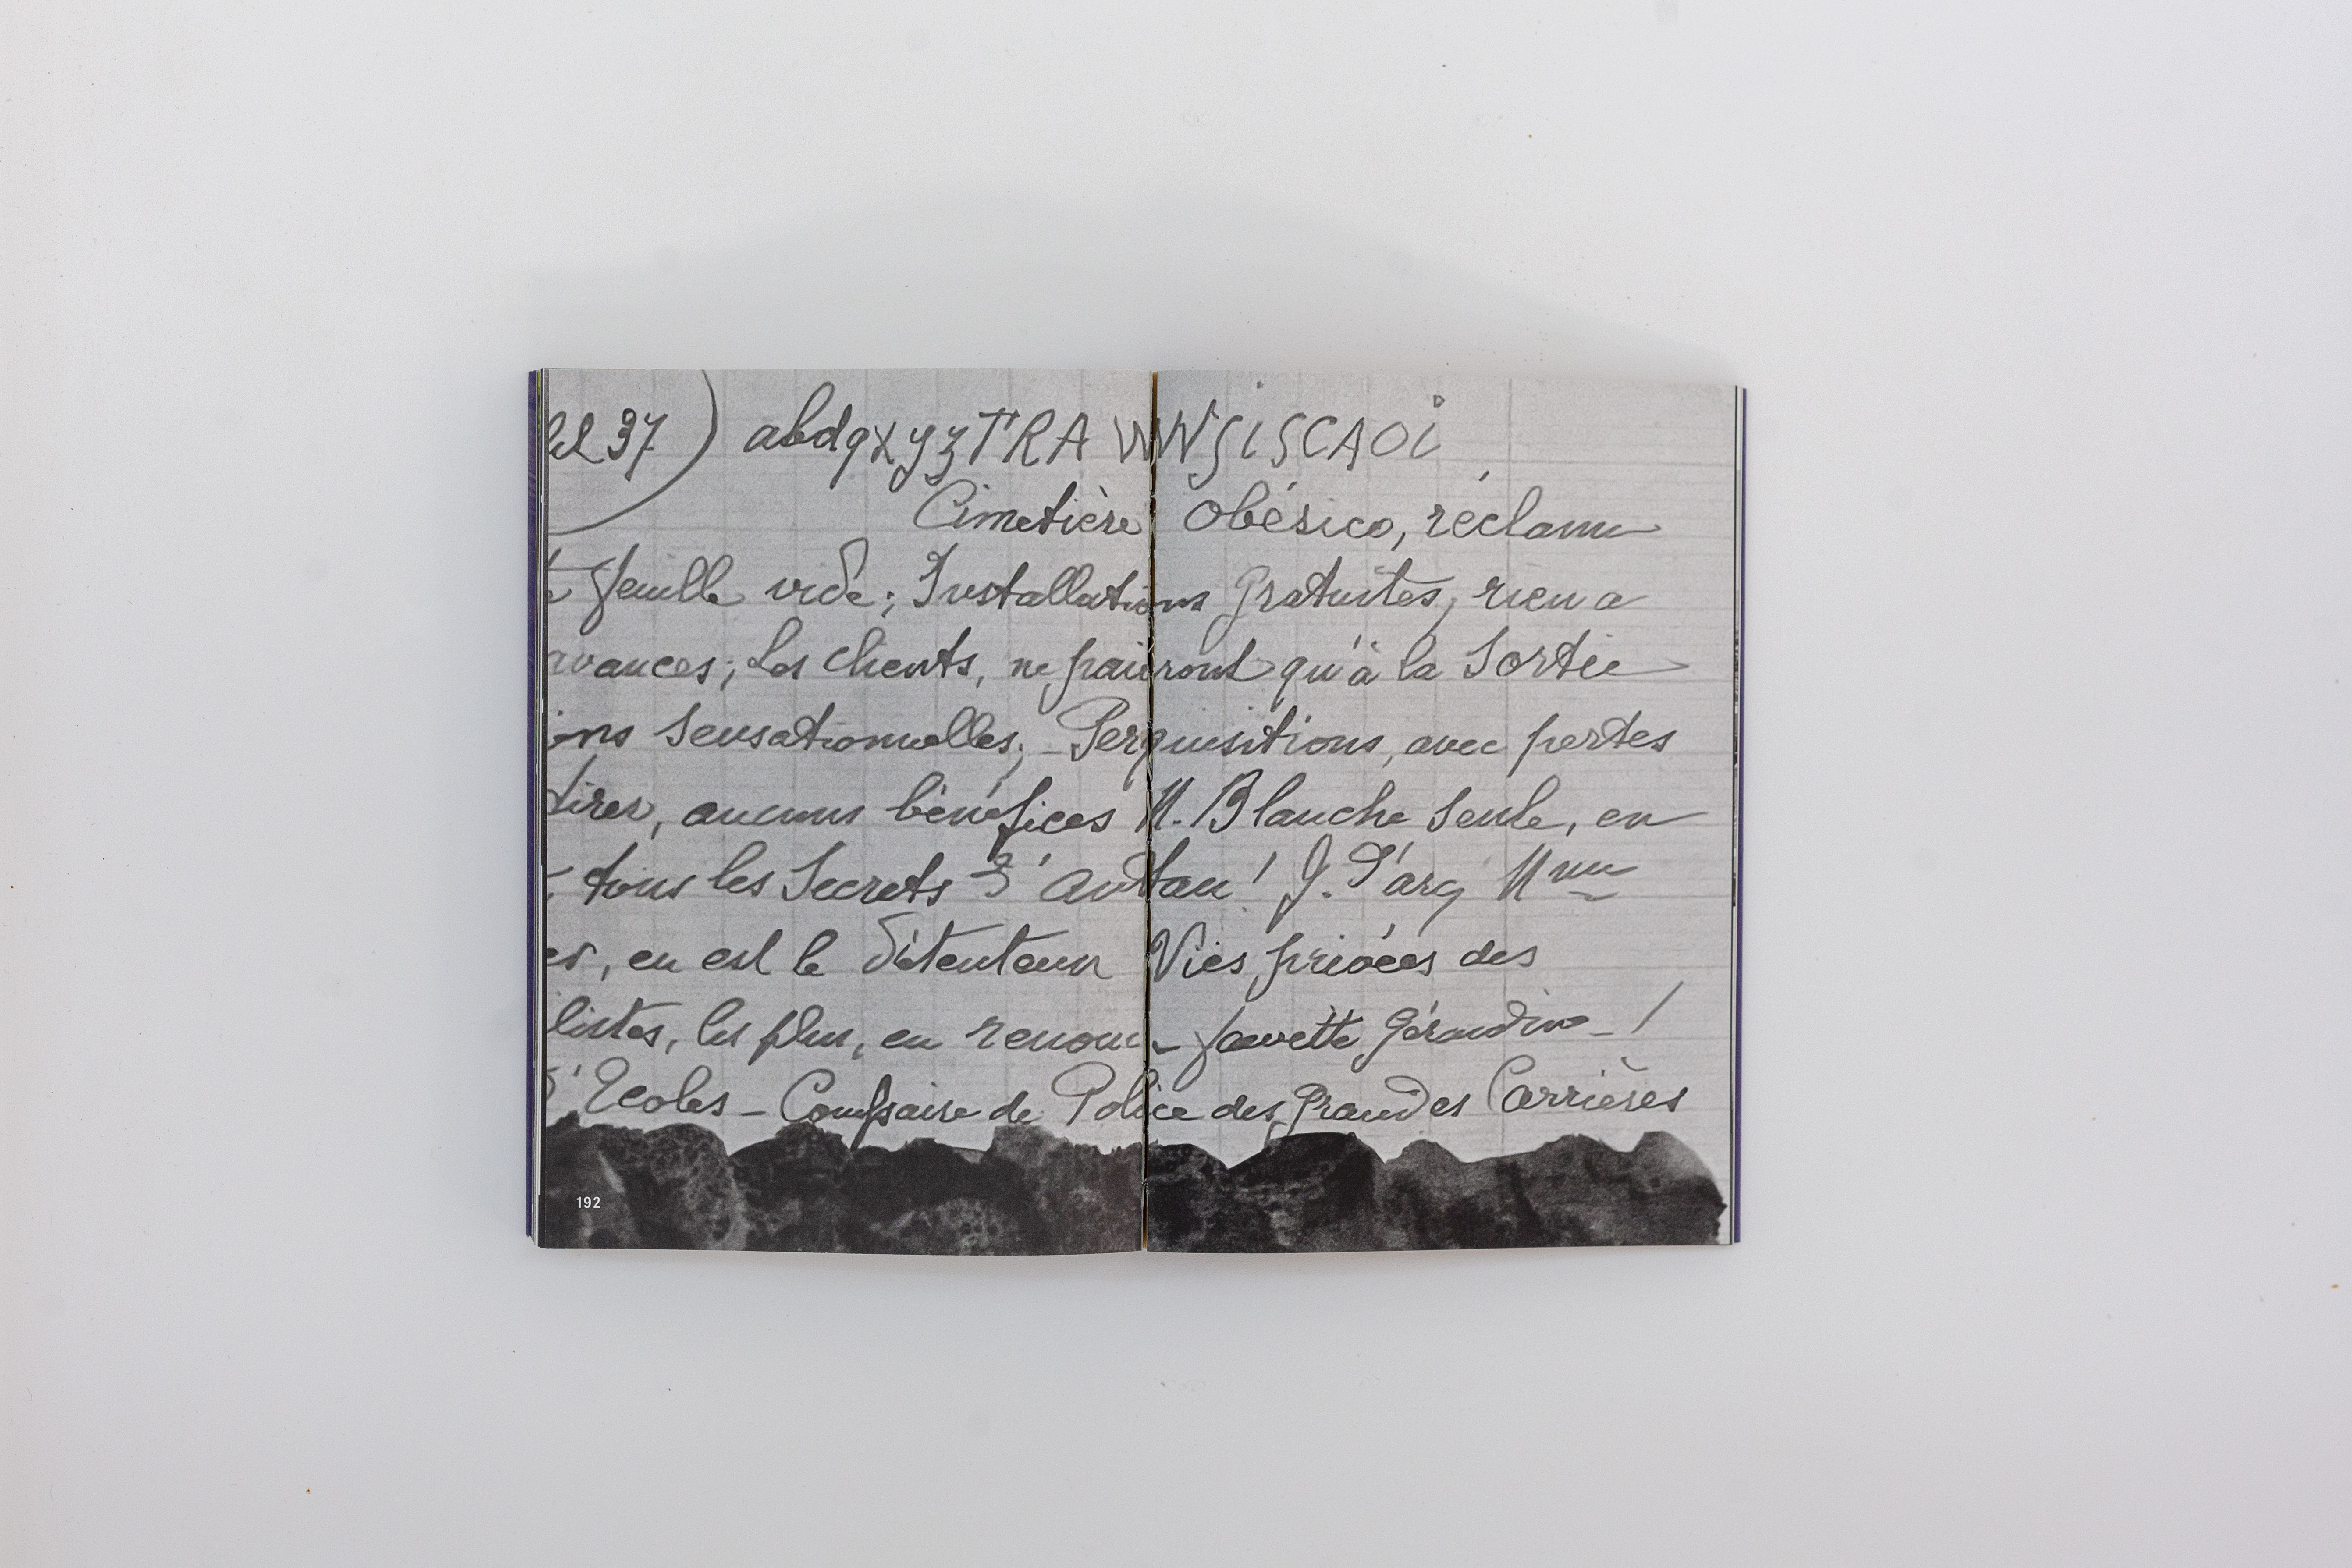 37) abdqxyzTRA WWSiSCAOi
Cimetière Obésico, réclame
feuille vide; Installations gratuites, rien a
avances; Les clients, ne paieront qu'à la Sortie
ons Sensationnelles; - Perquisitions, avec pertes
tirer, aucuns bénéfices M. Blanche Seule, en
tous les Secrets d'Autan! J. d'arc
es, en est le détenteur Vies privées des
listes, les plus, en renom - favette Gérandino - !
d'Ecoles - de Police des Grandes Carrières
192